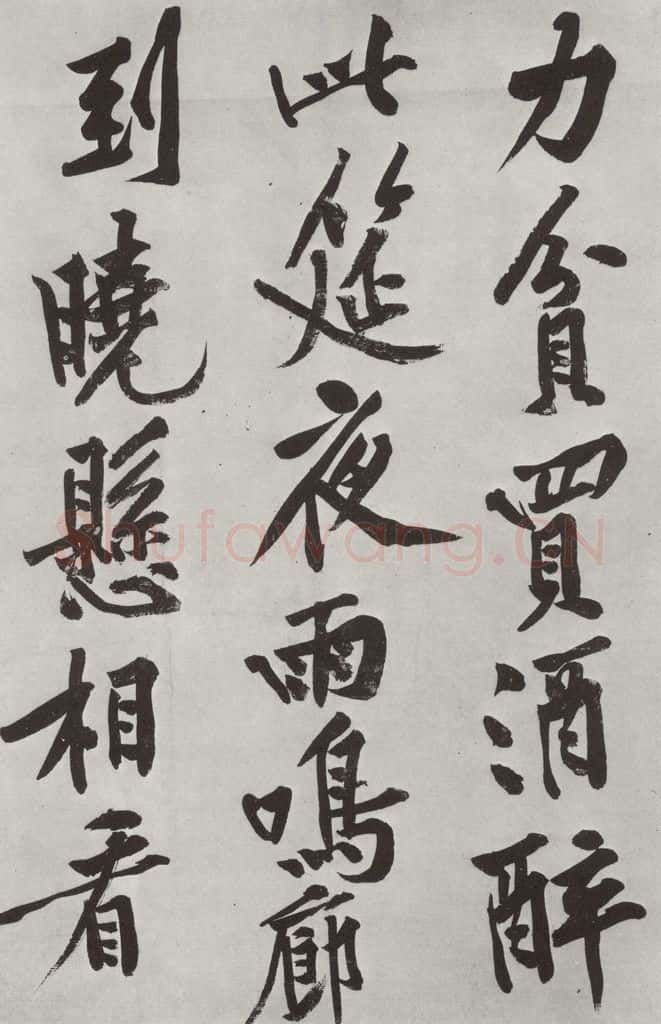 力貧買酒醉
此筵夜雨鳴廊
到曉懸相看
Shufawang.CN